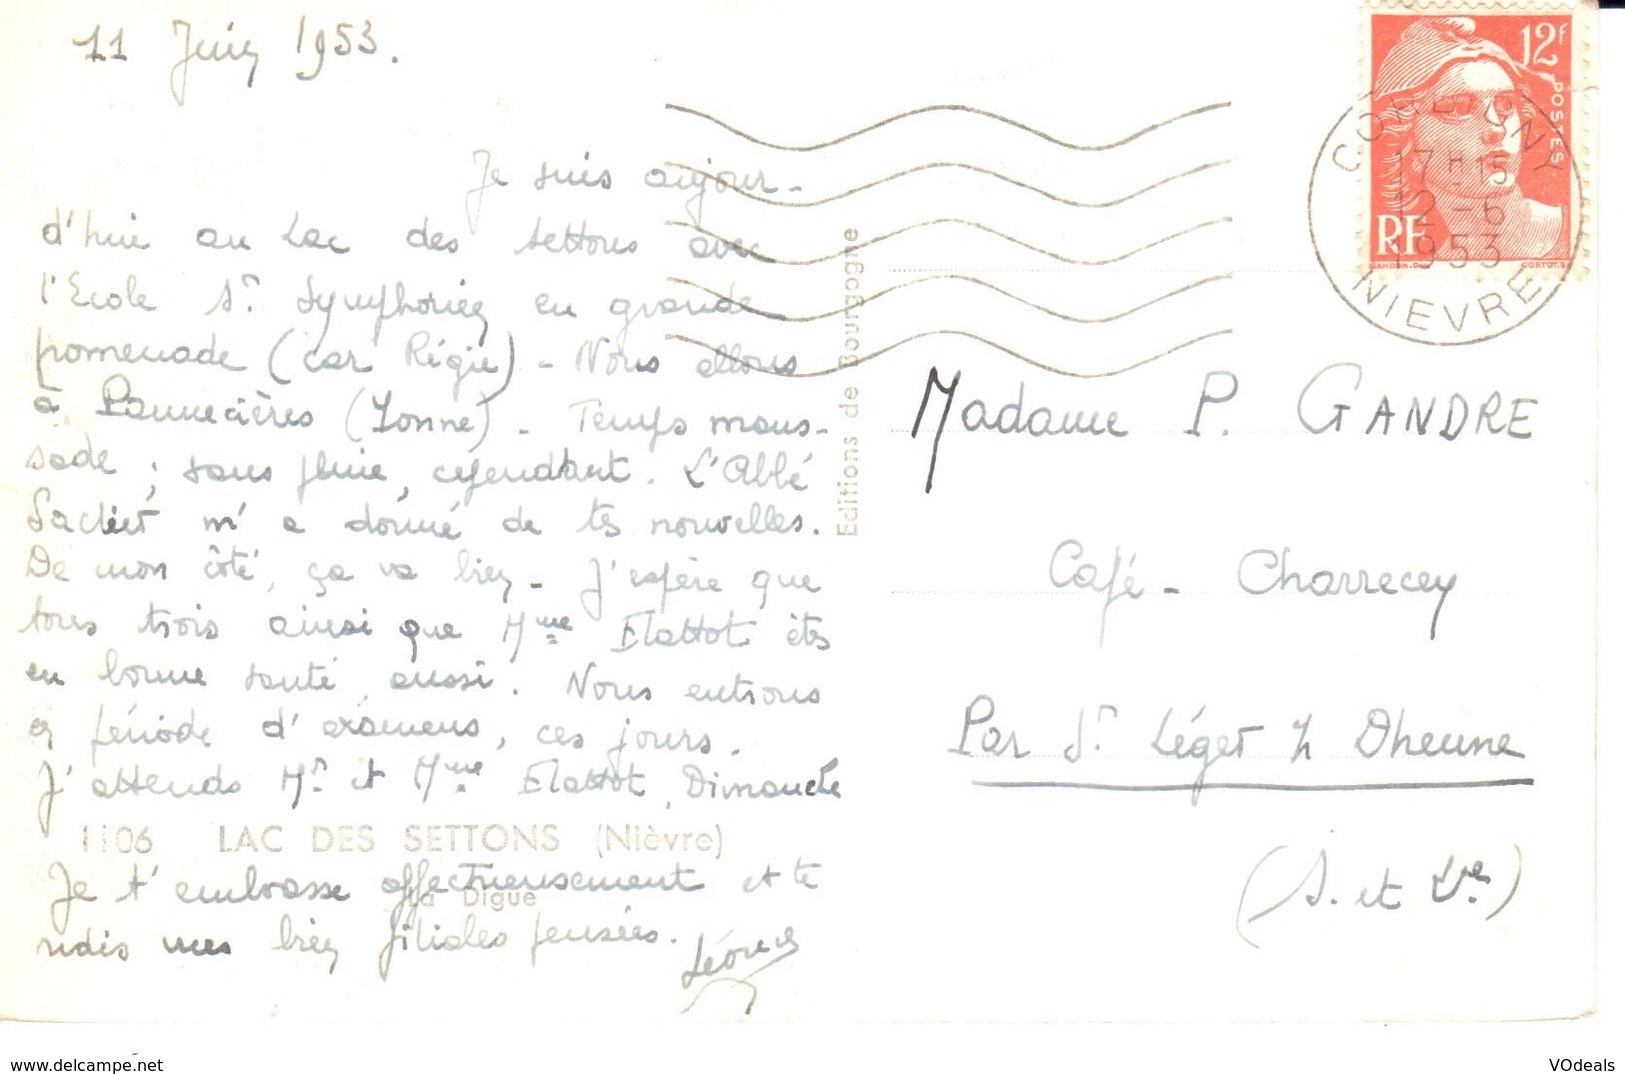 11 Juin 1953.
Je suis aujour-
d'hui au Lac des Settons avec
l'Ecole St Symphorien en grande
promenade (car Régie) - Nous allons
à Pannecières (Yonne) - Temps maus-
sade ; sans pluie, cependant. L'Abbé
m'a donné de tes nouvelles.
De mon côté, ça va bien - J'espère que
tous trois ainsi que Mme Flattot êtes
en bonne santé, aussi. Nous entrons
en période d'examens, ces jours.
J'attends Mr et Mme Flattot, Dimanche
1106 LAC DES SETTONS (Nièvre)
La Digue
Je t'embrasse affectueusement et te
redis mes bien filiales pensées.
Editions de Bourgogne
12F
POSTES
RF
GANDON.DEL
CORTOT.SC
CORBIGNY
17H15
12-6
1953
NIEVRE
Madame P. GANDRE
Café - Charrecey
Par St Léger s/ Dheune
(S. et Lre)
www.delcampe.net
VOdeals